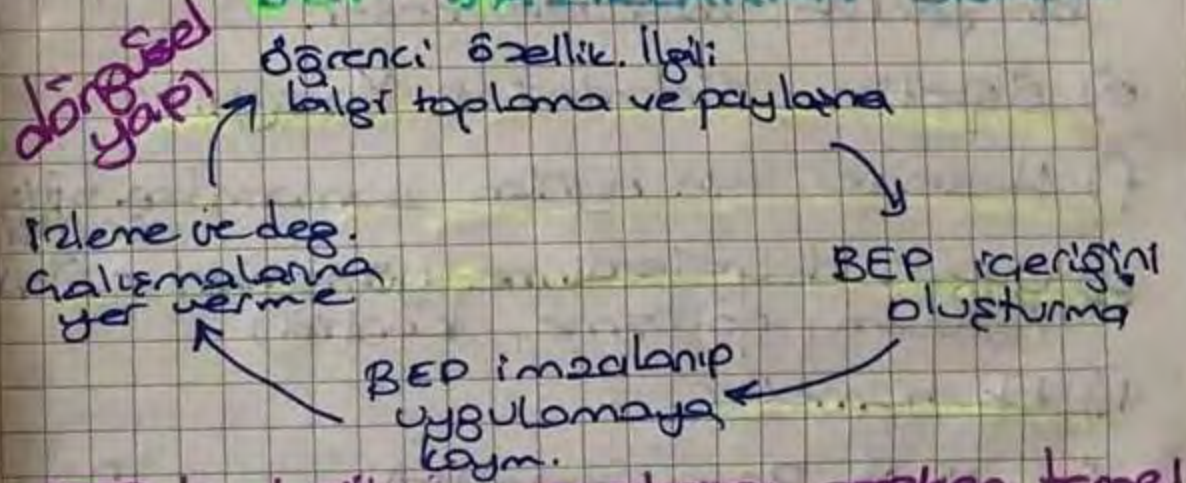 döngüsel
yapı
öğrenci özellik. ilgili
bilgi toplama ve paylaşma
BEP içeriğini
oluşturma
BEP imzalanıp
uygulamaya
koym.
izleme ve değ.
Çalışmalarına
yer verme
temel